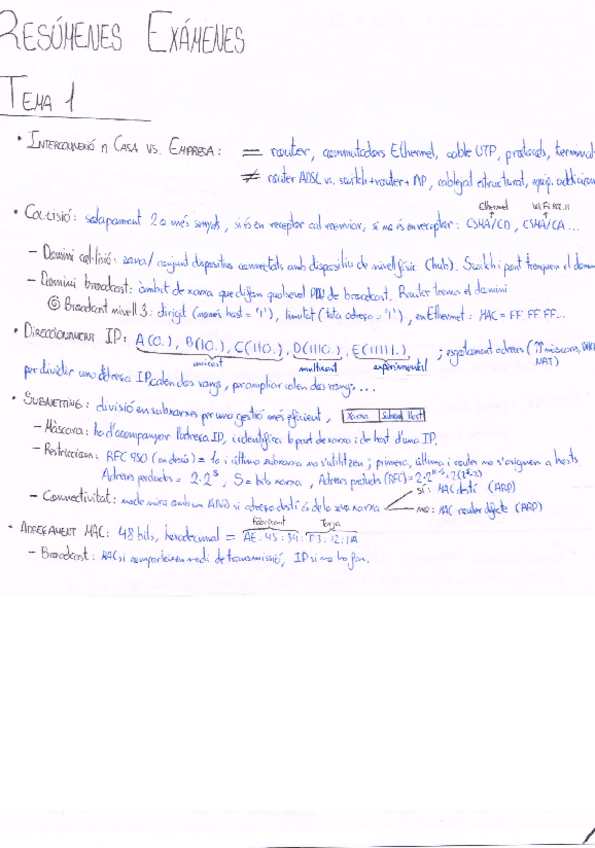 RESÚMENES EXÁMENES
TEMA 1
• INTERCONNEXIÓ A CASA VS. EMPRESA: = router, commutadors Ethernet, cable UTP, protocols, terminal
≠ router ADSL vs. switch+router+AP, cablejat estructural, equip. addicion
Ethernet Wi-Fi 802.11
• COL·LISIÓ: solapament 2 o més senyals, si és en receptor cal reenviar, si no és en receptor: CSMA/CD, CSMA/CA...
– Domini col·lisió: zona/conjunt dispositius connectats amb dispositiu de nivell físic (hub). Switch i pont trenquen el domin
– Domini broadcast: àmbit de xarxa que difon qualsevol PDU de broadcast. Router trenca el domini
Broadcast nivell 3: dirigit (només host = '1'), limitat (tota adreça = '1'), en Ethernet: MAC = FF FF FF...
• DIRECCIONAMENT IP: A(0.), B(10.), C(110.), D(1110.), E(11111.) ; esgotament adreces (
unicast multicast experimental NAT)
per dividir una adreça IP calen dos rangs, per ampliar calen dos rangs...
• SUBNETTING: divisió en subxarxes per una gestió més eficient, Xarxa Subxarxa Host
– Màscara: ha d'acompanyar l'adreça IP, identifica la part de xarxa i de host d'una IP.
– Restriccions: RFC 950 (en desús) = 1a i última subxarxa no s'utilitzen; primera, última i router no s'assignen a hosts.
Adreces perdudes = 2·2ˢ, S = bits xarxa, Adreces perdudes (RFC) =
sí: MAC destí (ARP)
– Connectivitat: node mira amb un AND si adreça destí és de la seva xarxa
no: MAC router defecte (ARP)
Fabricant Targa
• ADREÇAMENT MAC: 48 bits, hexadecimal = AE:43:34:F3:12:1A
– Broadcast: MAC si comparteixen medi de transmissió, IP si no ho fan.